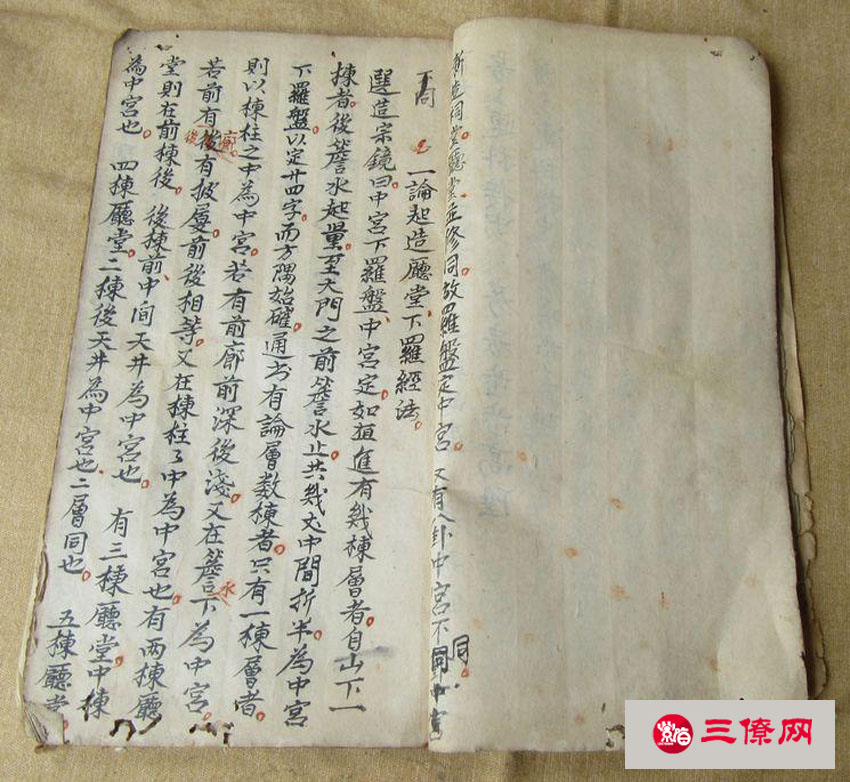 新造祠堂廳堂並修同故羅盤定中宮 又有八卦中宮不同
下局 一論起造廳堂下羅經法
選造宗鏡曰中宮下羅盤中宮定如直進有幾棟層者自山下一
棟者後簷水起量至大門之前簷水止共幾丈中間折半為中宮
下羅盤以定廿四字而方隅始確通书有論層数棟者只有一棟層者
則以棟柱之中為中宮若有前廊前深後淺又在簷下為中宮
水
若前有後有披厦前後相等又在棟柱了中為中宮也有两棟廳
廊
後
堂則在前棟後 後棟前中间天井為中宮也 有三棟廳堂中棟
為中宮也 四棟廳堂二棟後天井為中宮也二層同也 五棟廳堂
三僚网